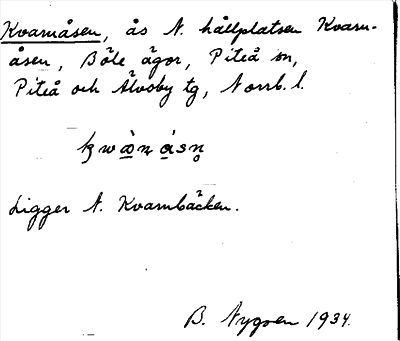 Kvarnåsen, ås N. hållplatsen Kvarn-
åsen, Böle ägor, Piteå sn,
Piteå och Älvsby tg, Norrb. l.
Ligger N. Kvarnbäcken.
B. Nygren 1934.